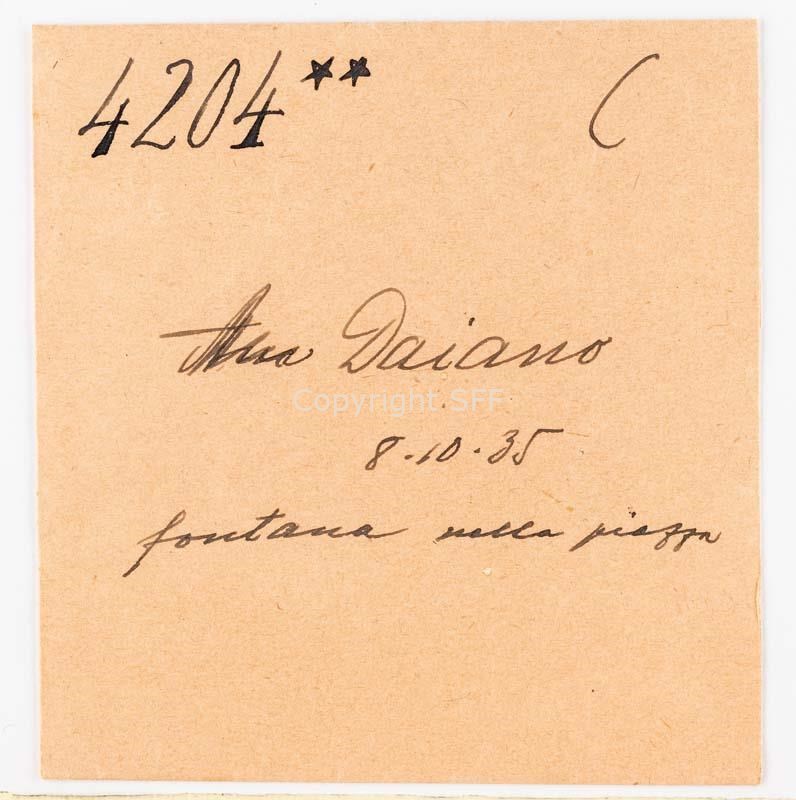 4204** C
Daiano
8.10.35
fontana nella piazza
Copyright SFF